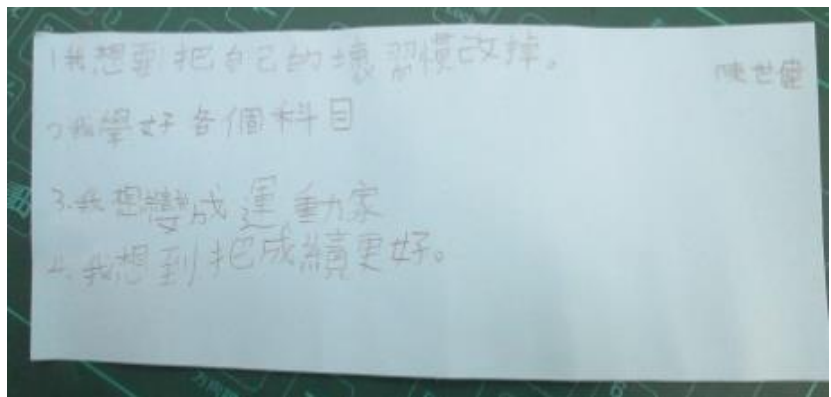 1我想到把自己的壞習慣改掉。
陳世偉
2我學好各個科目
3.我想變成運動家
4.我想到把成績更好。